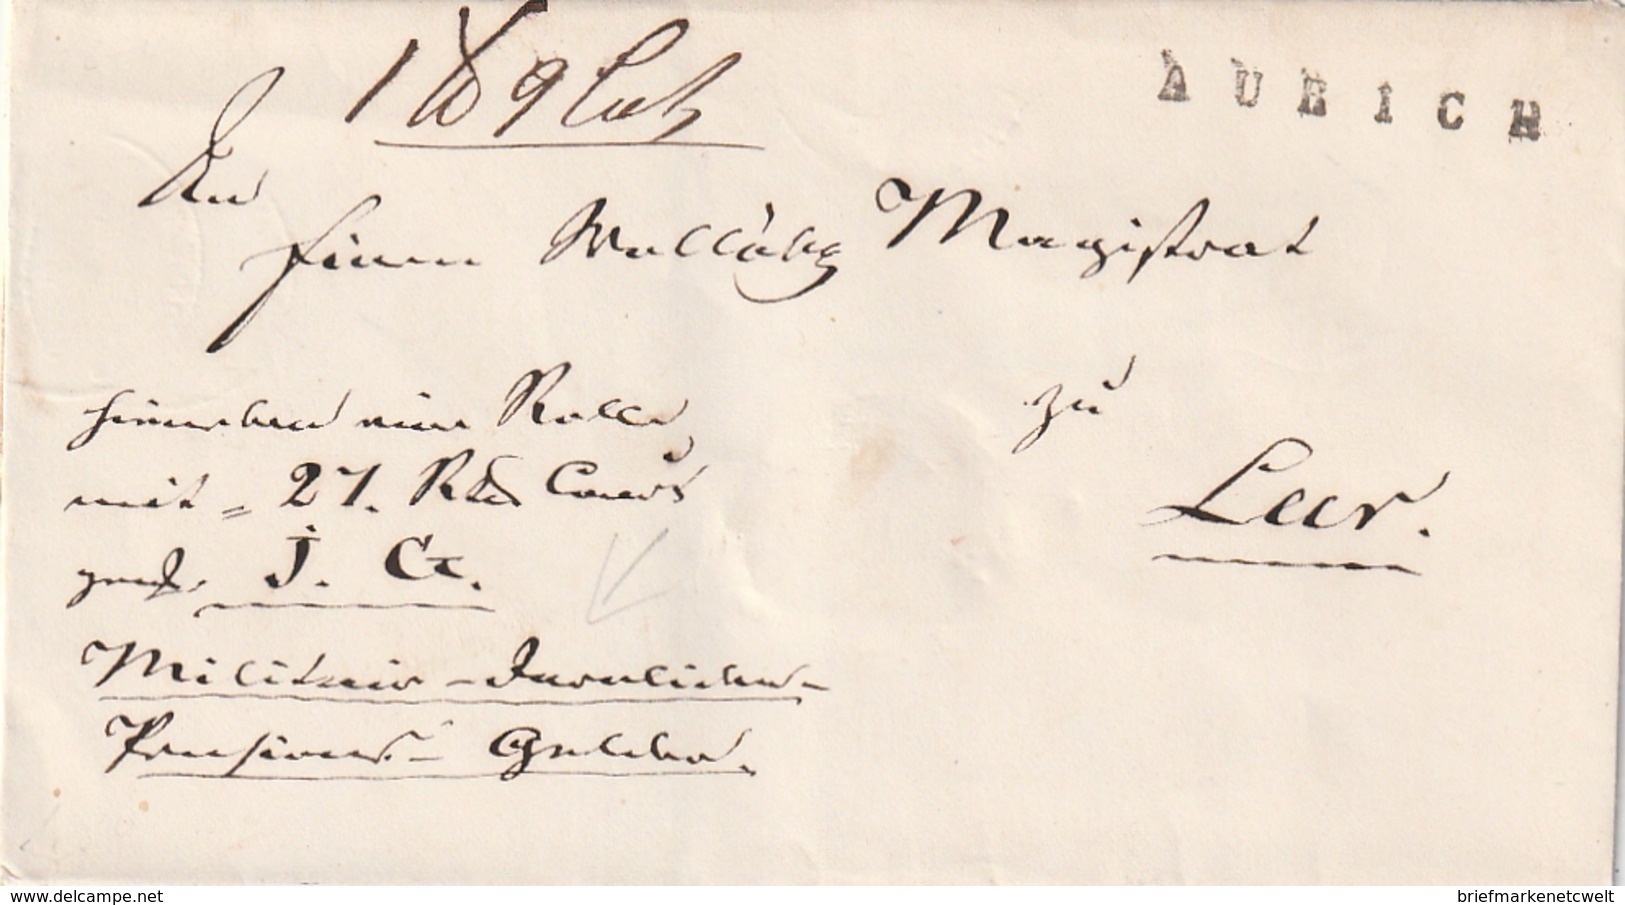 AURICH
1 ℔ 9 Loth
An
Einen Wollöbl. Magistrat
zu
Leer.
hierneben eine Rolle
mit = 27. Rth Cour.
gez. J. C.
Militair-Invaliden-
Pensions-Gelder.
delcampe.net
briefmarkenetcwelt